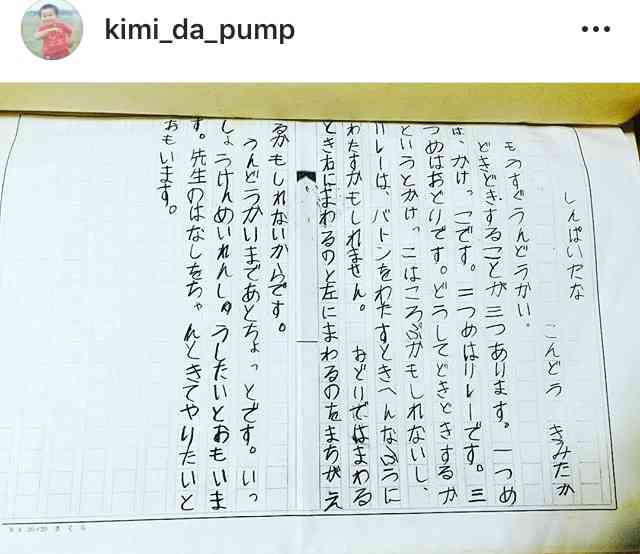 kimi_da_pump
しんぱいだな
こんどう きみたか
もうすぐうんどうかい。
どきどきすることが三つあります。一つめ
は、かけっこです。二つめはリレーです。三
つめはおどりです。どうしてどきどきするか
というとかけっこはころぶかもしれないし、
リレーは、バトンをわたすときへんなふうに
わたすかもしれません。 おどりではまわる
とき右にまわるのと左にまわるのをまちがえ
るかもしれないからです。
うんどうかいまであとちょっとです。いっ
しょうけんめいれんしゅうしたいとおもいま
す。先生のはなしをちゃんときてやりたいと
おもいます。